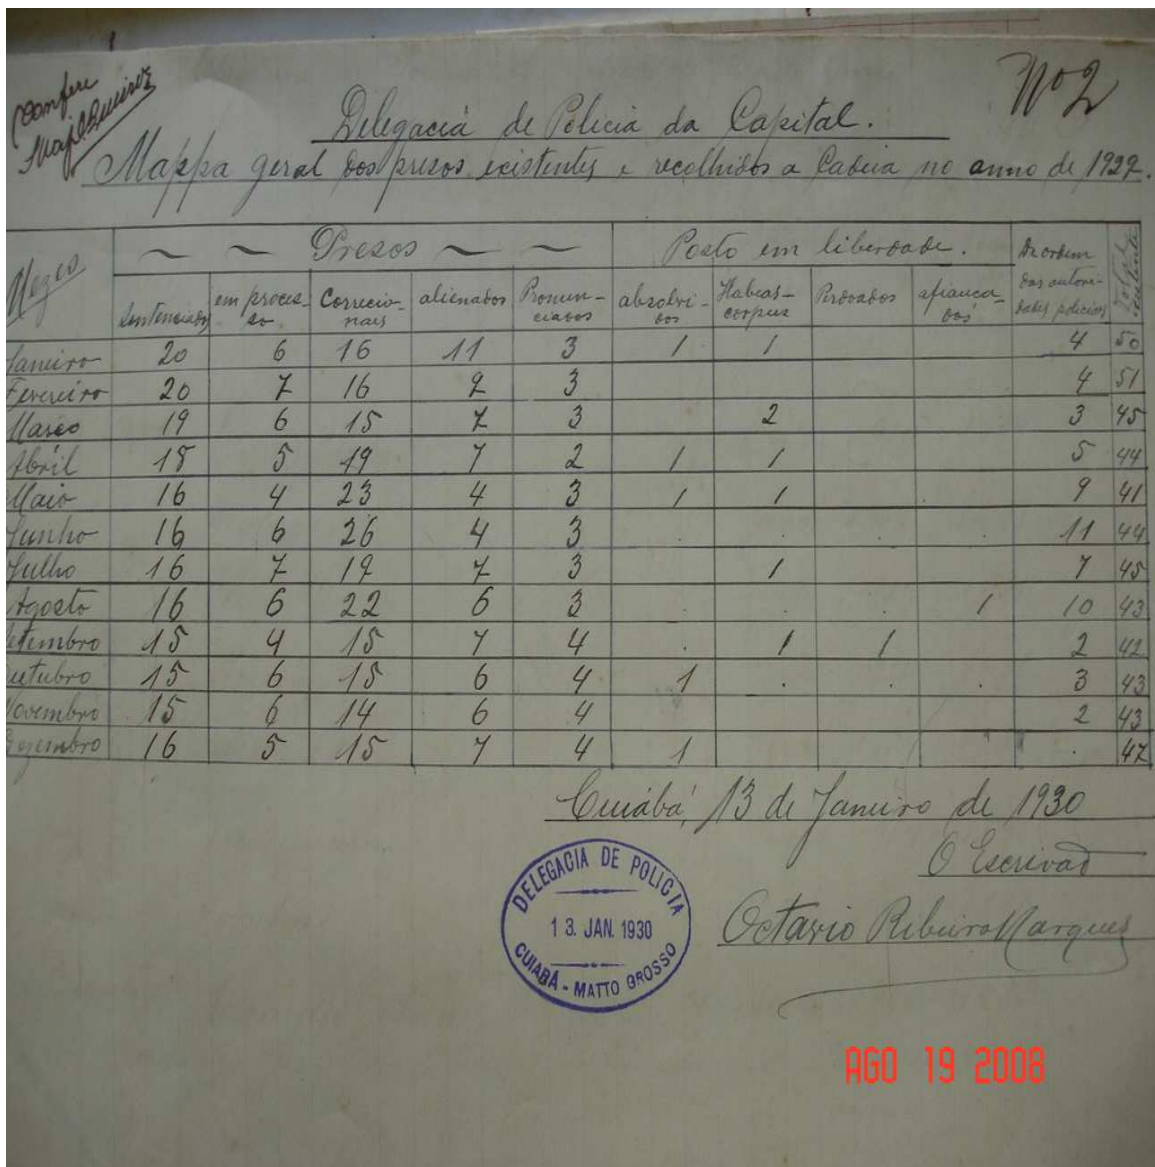 Confere
Nº 2
Delegacia de Policia da Capital.
Mappa geral dos presos existentes e recolhidos a Cadeia no anno de 1929.
Mezes ~ ~ Presos ~ ~ Posto em liberdade. De ordem das autoridades policiaes Total existente
Sentenciados em processo Correcionais alienados Pronunciados absolvidos Habeas-corpus Perdoados afiançados
Janeiro 20 6 16 11 3 1 1 4 50
Fevereiro 20 7 16 9 3 4 51
Março 19 6 15 7 3 2 3 45
Abril 18 5 19 7 2 1 1 5 44
Maio 16 4 23 4 3 1 1 9 41
Junho 16 6 26 4 3 . . . . 11 44
Julho 16 7 19 7 3 1 7 45
Agosto 16 6 22 6 3 . . . 1 10 43
Setembro 15 4 15 7 4 1 1 2 42
Outubro 15 6 15 6 4 1 . . . 3 43
Novembro 15 6 14 6 4 2 43
Dezembro 16 5 15 7 4 1 . 47
Cuiabá, 13 de Janeiro de 1930
O Escrivão
Octavio Ribeiro Marques
DELEGACIA DE POLICIA
13. JAN. 1930
CUIABÁ - MATTO GROSSO
AGO 19 2008